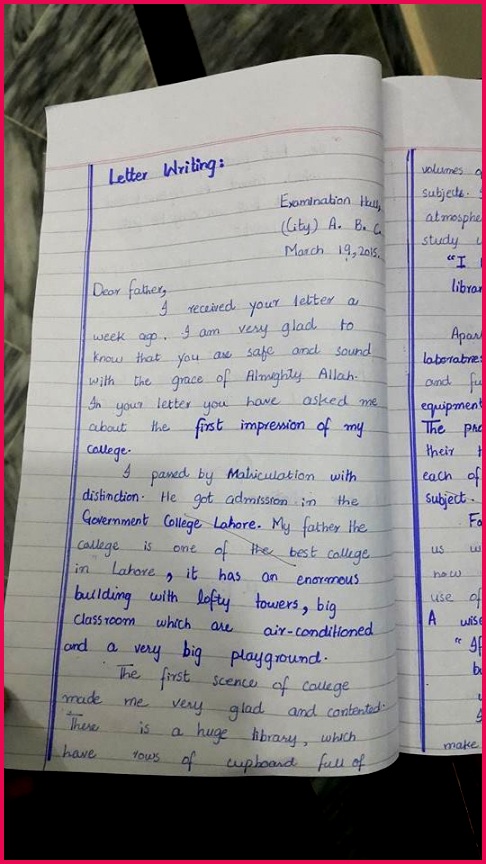 Letter Writing:
Examination Hall,
(City) A. B. C.
March 19, 2015.
Dear father,
I received your letter a
week ago. I am very glad to
know that you are safe and sound
with the grace of Almighty Allah.
In your letter you have asked me
about the first impression of my
college.
I passed by Matriculation with
distinction. He got admission in the
Government College Lahore. My father the
college is one of the best college
in Lahore, it has an enormous
building with lofty towers, big
classroom which are air-conditioned
and a very big playground.
The first scence of college
made me very glad and contented.
There is a huge library, which
have rows of cupboard full of
volumes
subjects.
atmosphe
study
"I
librar
Apar
laboratries
and fu
equipment
The pr
their
each of
subject.
Fo
us w
now
use of
A wise
"If
b
make